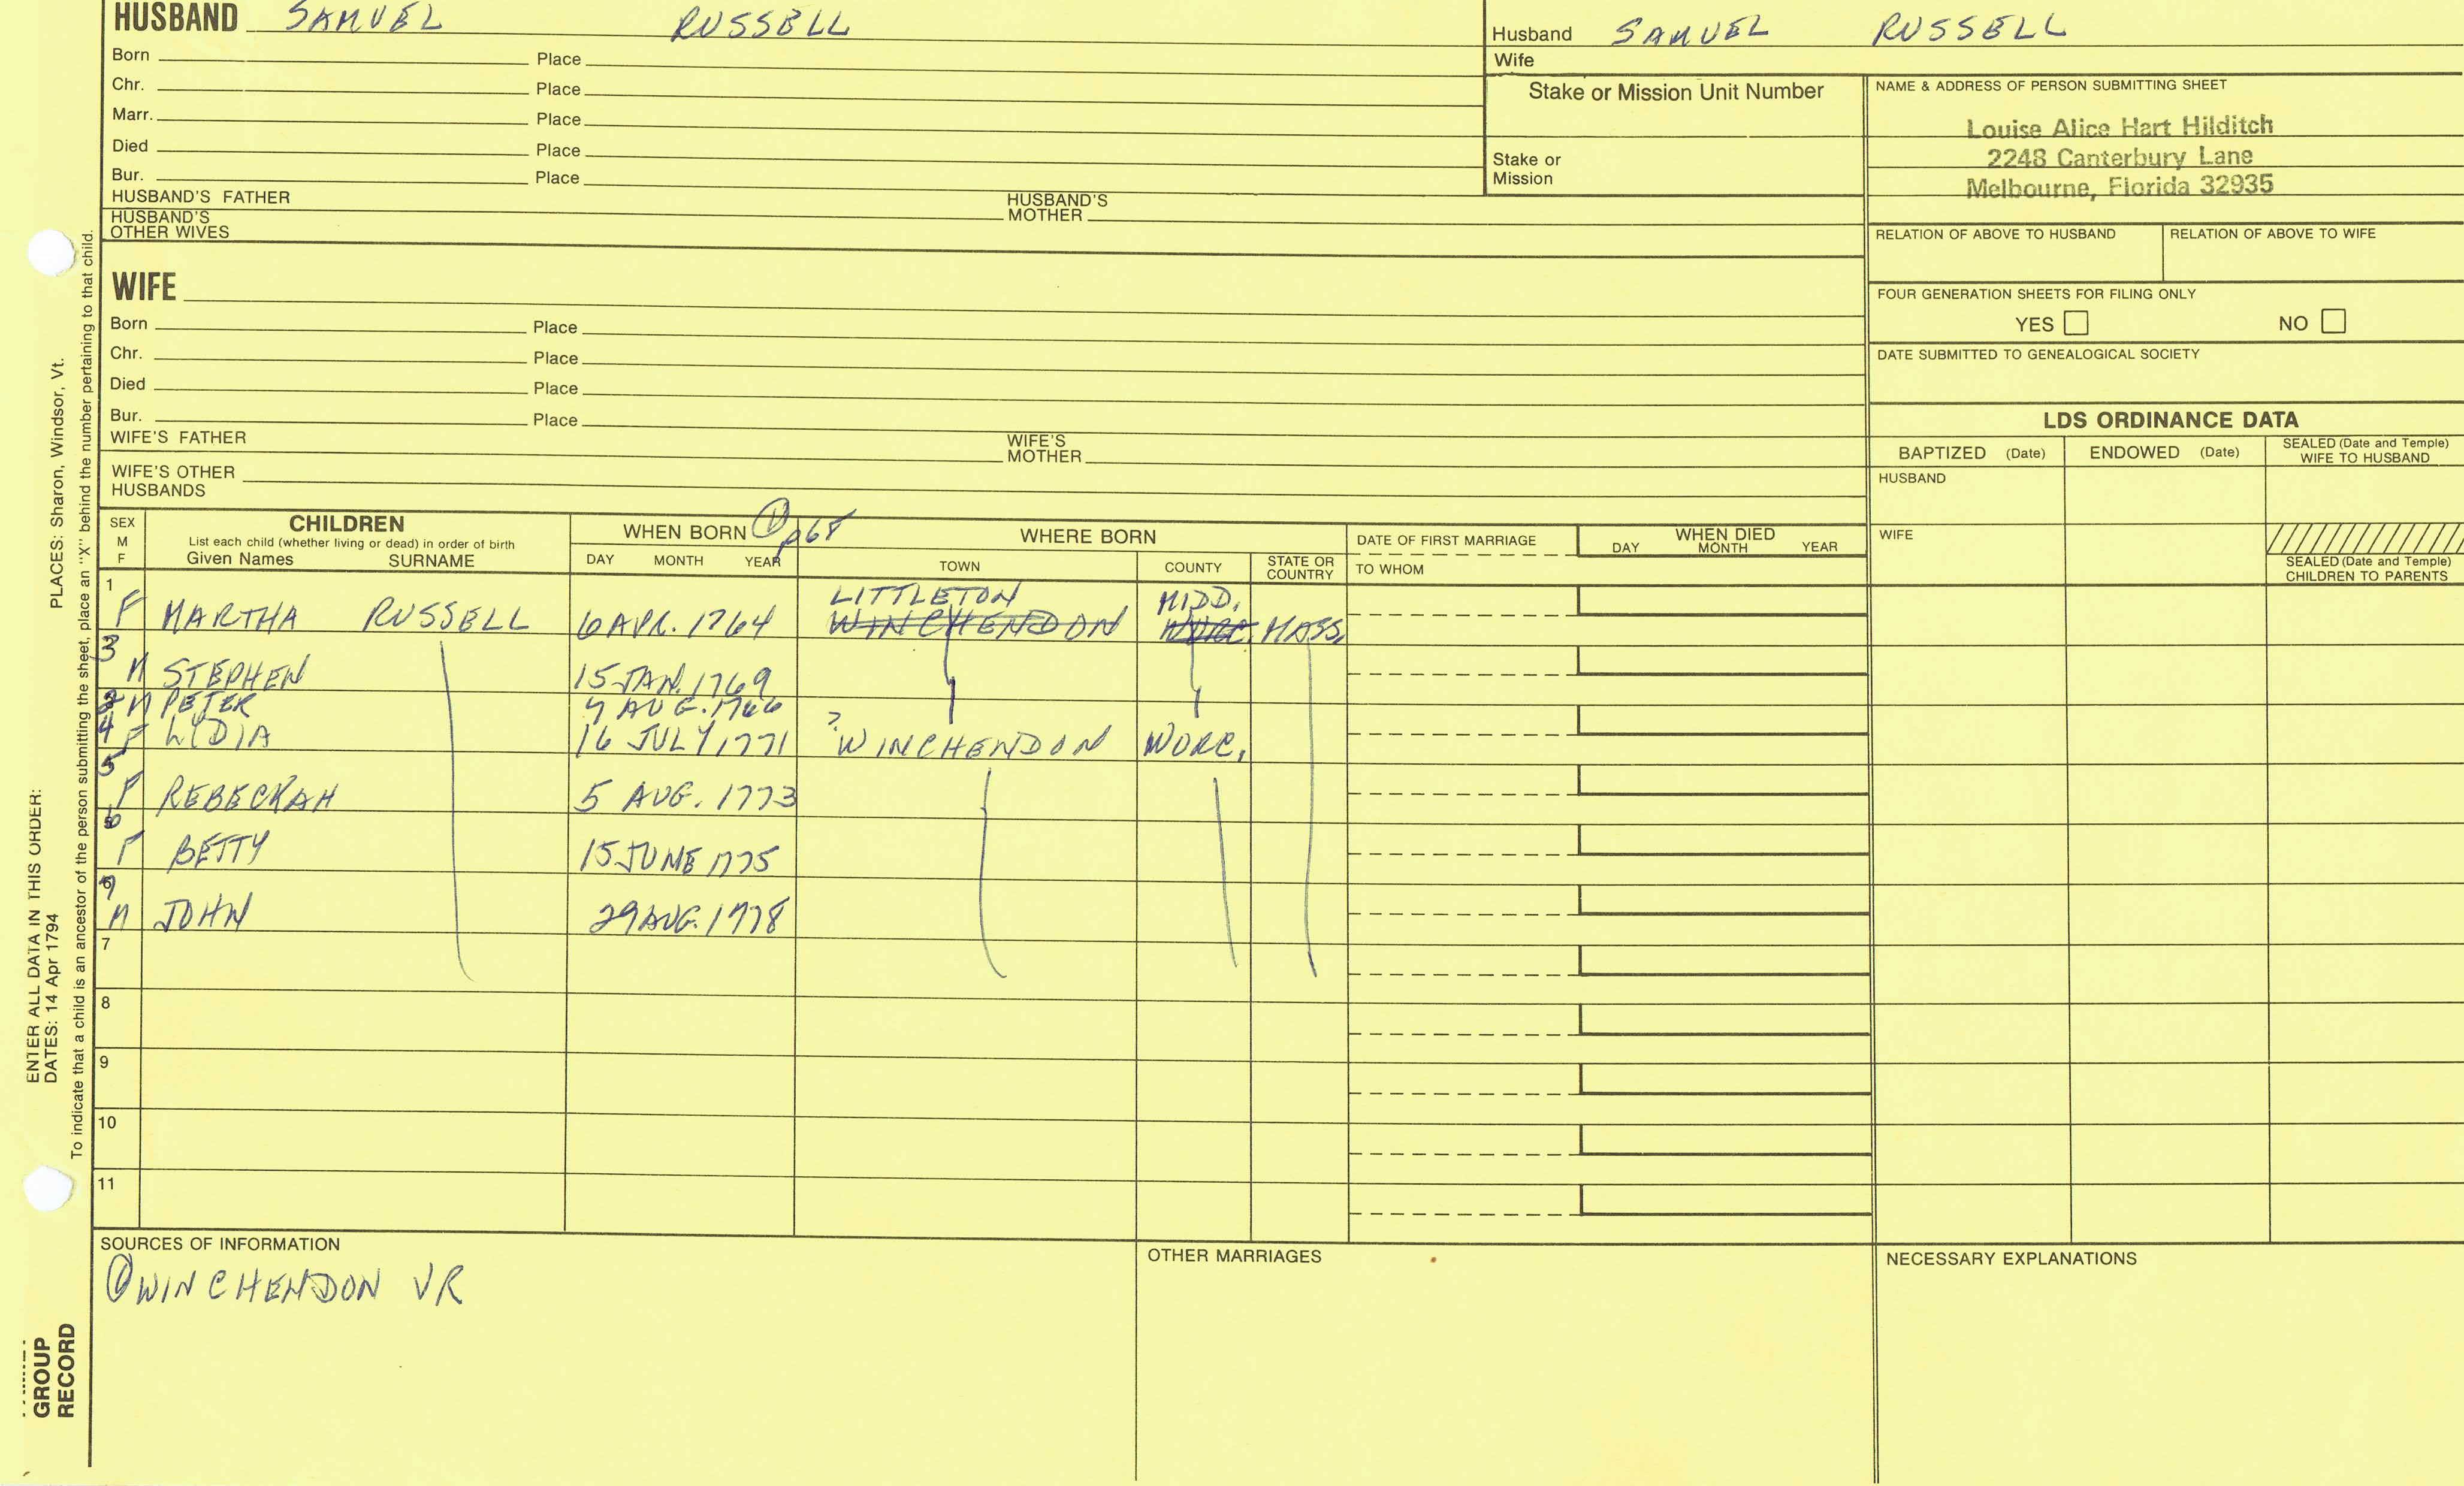 HUSBAND SAMUEL RUSSELL
Born Place
Chr. Place
Marr. Place
Died Place
Bur. Place
HUSBAND'S FATHER HUSBAND'S MOTHER
HUSBAND'S OTHER WIVES
Husband SAMUEL RUSSELL
Wife
Stake or Mission Unit Number
Stake or
Mission
NAME & ADDRESS OF PERSON SUBMITTING SHEET
Louise Alice Hart Hilditch
2248 Canterbury Lane
Melbourne, Florida 32935
RELATION OF ABOVE TO HUSBAND RELATION OF ABOVE TO WIFE
FOUR GENERATION SHEETS FOR FILING ONLY
YES NO
DATE SUBMITTED TO GENEALOGICAL SOCIETY
WIFE
Born Place
Chr. Place
Died Place
Bur. Place
WIFE'S FATHER WIFE'S MOTHER
WIFE'S OTHER
HUSBANDS
LDS ORDINANCE DATA
BAPTIZED (Date) ENDOWED (Date) SEALED (Date and Temple) WIFE TO HUSBAND
HUSBAND
WIFE
SEALED (Date and Temple)
CHILDREN TO PARENTS
SEX
M
F
CHILDREN
List each child (whether living or dead) in order of birth
Given Names SURNAME
WHEN BORN ① p68
DAY MONTH YEAR
WHERE BORN
TOWN COUNTY STATE OR COUNTRY
DATE OF FIRST MARRIAGE
TO WHOM
WHEN DIED
DAY MONTH YEAR
1
LITTLETON MIDD.
F MARTHA RUSSELL 6 APR. 1764 WINCHENDON WORC. MASS.
3
M STEPHEN 15 JAN. 1769
2 M PETER 7 AUG. 1766
4 F LYDIA 16 JULY 1771 ? WINCHENDON WORC.
5
F REBECKAH 5 AUG. 1773
6
F BETTY 15 JUNE 1775
7
M JOHN 29 AUG. 1778
7
8
9
10
11
SOURCES OF INFORMATION
① WINCHENDON VR
OTHER MARRIAGES
NECESSARY EXPLANATIONS
PLACES: Sharon, Windsor, Vt.
To indicate that a child is an ancestor of the person submitting the sheet, place an "X" behind the number pertaining to that child.
ENTER ALL DATA IN THIS ORDER:
DATES: 14 Apr 1794
GROUP
RECORD